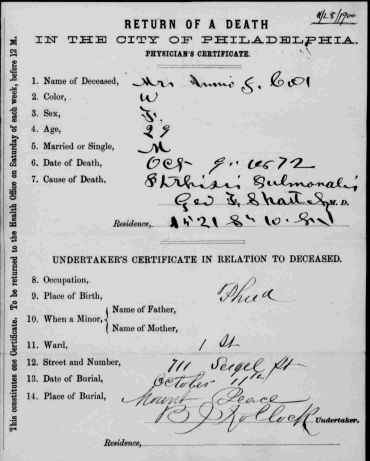 RETURN OF A DEATH
IN THE CITY OF PHILADELPHIA.
PHYSICIAN'S CERTIFICATE.
1. Name of Deceased, Mrs Annie
2. Color, W
3. Sex, F.
4. Age, 29
5. Married or Single, M
6. Date of Death, Oct 9" 1872
7. Cause of Death, Phthisis Pulmonalis
Geo M. D.
Residence, 1521 S" 10. St
UNDERTAKER'S CERTIFICATE IN RELATION TO DECEASED.
8. Occupation,
9. Place of Birth, Phila
10. When a Minor, Name of Father,
Name of Mother,
11. Ward, 1 St
12. Street and Number, 711 Seigel St
13. Date of Burial, October 11th
14. Place of Burial, Mount Peace
Undertaker.
Residence,
This constitutes one Certificate. To be returned to the Health Office on Saturday of each week, before 12 M.